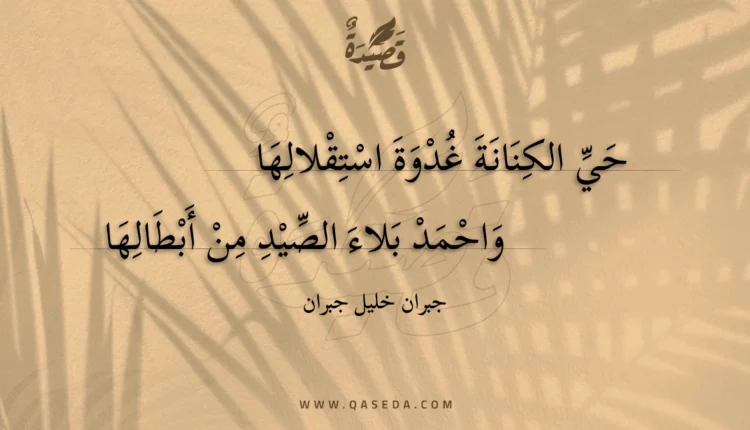 قَصِيْدَةٌ
حَيِّ الكِنَانَةَ غُدْوَةَ اسْتِقْلالِهَا
وَاحْمَدْ بَلاءَ الصِّيْدِ مِنْ أَبْطَالِهَا
جبران خليل جبران
WWW.QASEDA.COM